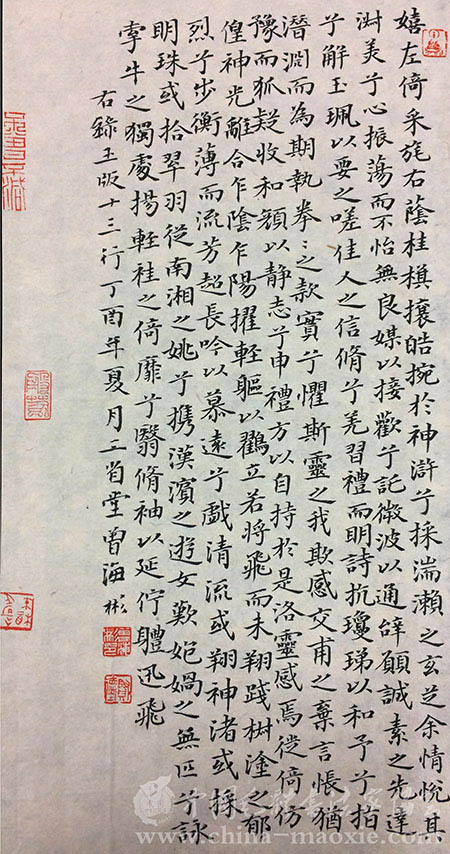 嬉左倚采旄右蔭桂棋攘皓捥於神滸兮採湍瀨之玄芝余情悅其
淑美兮心振蕩而不怡無良媒以接歡兮託微波以通辝願誠素之先達
兮解玉珮以要之嗟佳人之信脩兮羌習禮而明詩抗瓊珶以和予兮指
潛淵而為期執拳〻之款實兮懼斯靈之我欺感交甫之棄言悵猶
豫而狐疑收和顏以静志兮申禮方以自持於是洛靈感焉徙倚仿
偟神光離合乍陰乍陽擢輕軀以鸖立若將飛而未翔踐椒塗之郁
烈兮步衡薄而流芳超長吟以慕遠兮戲清流或翔神渚或採
明珠或拾翠羽從南湘之姚兮携漢濱之遊女歎匏媧之無匹兮詠
牽牛之獨處揚輕袿之倚靡兮翳脩袖以延佇軆迅飛
右錄玉版十三行丁酉年夏月三省堂曾海彬
www.china-maoxie.com